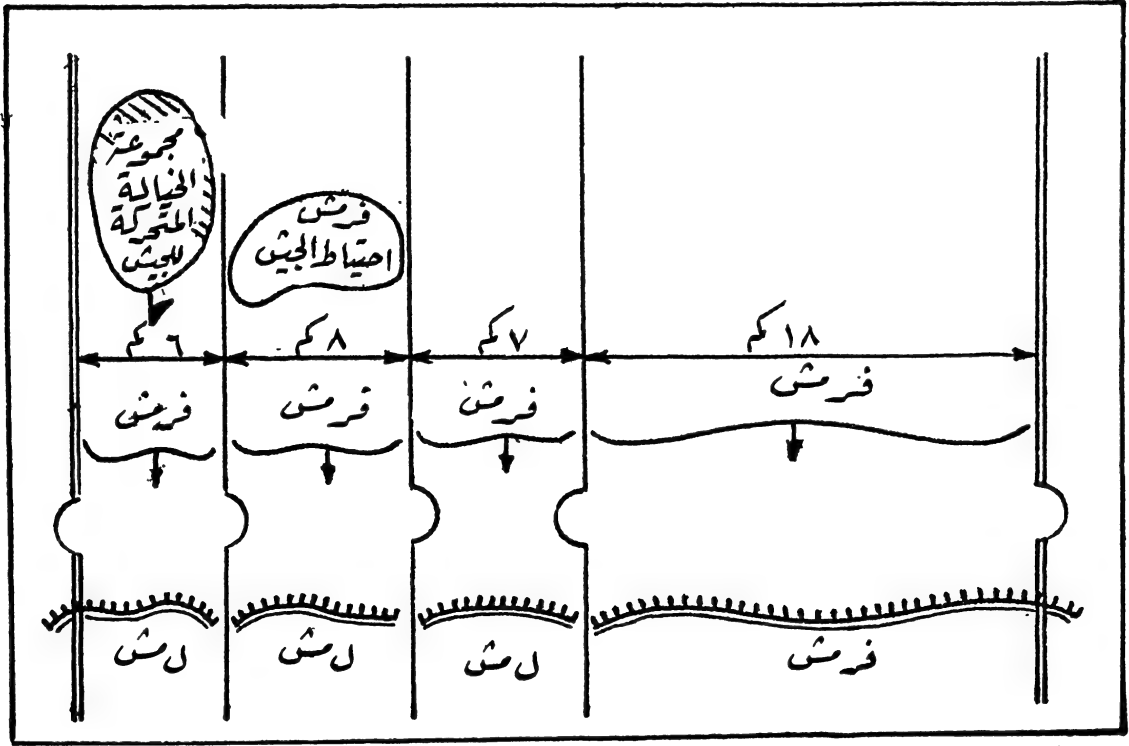 مجموعة
الخيالة
المتحركة
للجيش
فر مش
احتياط الجيش
١٨ كم
٧ كم
٨ كم
٦ كم
فر مش
فر مش
فر مش
فر مش
فر مش
ل مش
ل مش
ل مش